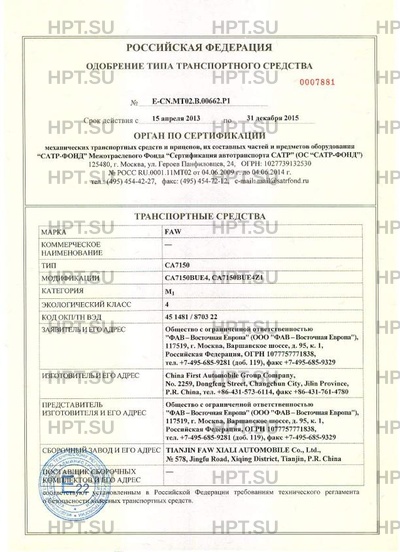 HPT.SU HPT.SU HPT.SU
РОССИЙСКАЯ ФЕДЕРАЦИЯ
ОДОБРЕНИЕ ТИПА ТРАНСПОРТНОГО СРЕДСТВА
0007881
№ E-CN.MT02.B.00662.P1
Срок действия с 15 апреля 2013 по 31 декабря 2015
ОРГАН ПО СЕРТИФИКАЦИИ
механических транспортных средств и прицепов, их составных частей и предметов оборудования
“САТР-ФОНД” Межотраслевого Фонда “Сертификация автотранспорта САТР” (ОС “САТР-ФОНД”)
125480, г. Москва, ул. Героев Панфиловцев, 24, ОГРН 1027739132530
№ РОСС RU.0001.11МТ02 от 04.06.2009 г. до 04.06.2014 г.
тел.: (495) 454-42-27, факс: (495) 454-72-12, e-mail:mail@satrfond.ru
ТРАНСПОРТНЫЕ СРЕДСТВА
МАРКА FAW
КОММЕРЧЕСКОЕ —
НАИМЕНОВАНИЕ
ТИП CA7150
МОДИФИКАЦИИ CA7150BUE4, CA7150BUE4Z1
КАТЕГОРИЯ M1
ЭКОЛОГИЧЕСКИЙ КЛАСС 4
КОД ОКП/ТН ВЭД 45 1481 / 8703 22
ЗАЯВИТЕЛЬ И ЕГО АДРЕС Общество с ограниченной ответственностью
"ФАВ–Восточная Европа" (ООО "ФАВ – Восточная Европа"),
117519, г. Москва, Варшавское шоссе, д. 95, к. 1,
Российская Федерация, ОГРН 1077757771838,
тел. +7-495-685-9281 (доб. 119), факс +7-495-685-9329
ИЗГОТОВИТЕЛЬ И ЕГО АДРЕС China First Automobile Group Company,
No. 2259, Dongfeng Street, Changchun City, Jilin Province,
P.R. China, тел. +86-431-573-6114, факс +86-431-761-4780
ПРЕДСТАВИТЕЛЬ Общество с ограниченной ответственностью
ИЗГОТОВИТЕЛЯ И ЕГО АДРЕС "ФАВ–Восточная Европа" (ООО "ФАВ – Восточная Европа"),
117519, г. Москва, Варшавское шоссе, д. 95, к. 1,
Российская Федерация, ОГРН 1077757771838,
тел. +7-495-685-9281 (доб. 119), факс +7-495-685-9329
СБОРОЧНЫЙ ЗАВОД И ЕГО АДРЕС TIANJIN FAW XIALI AUTOMOBILE Co., Ltd.,
№ 578, Jingfu Road, Xiqing District, Tianjin, P.R. China
ПОСТАВЩИК СБОРОЧНЫХ —
КОМПЛЕКТОВ И ЕГО АДРЕС
соответствуют установленным в Российской Федерации требованиям технического регламента
о безопасности колесных транспортных средств.
E22